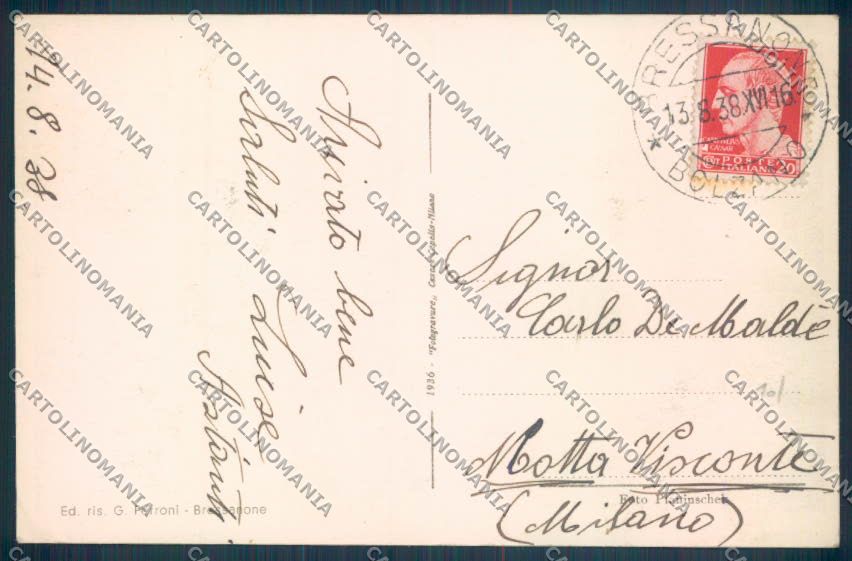 14.8.38
Arrivato bene
Saluti
Luise
BRESSANONE
BOLZANO
13.8.38.XVI 16
POSTE
ITALIANE
CENT 20
Signor
Carlo De Maldè
Motta Visconte
(Milano)
1936 - "Fotogravure„ Cesare Capello-Milano
Ed. ris. G. Petroni - Bressanone
Foto Planinschek
CARTOLINOMANIA